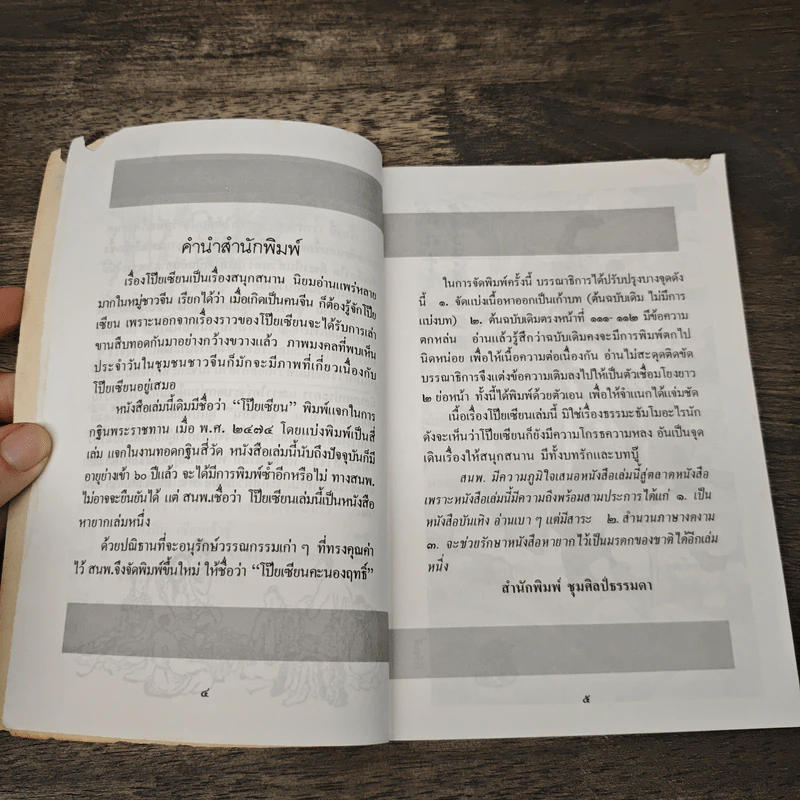 คำนำสำนักพิมพ์
เรื่องโป๊ยเซียนเป็นเรื่องสนุกสนาน นิยมอ่านแพร่หลาย
มากในหมู่ชาวจีน เรียกได้ว่า เมื่อเกิดเป็นคนจีน ก็ต้องรู้จักโป๊ย
เซียน เพราะนอกจากเรื่องราวของโป๊ยเซียนจะได้รับการเล่า
ขานสืบทอดกันมาอย่างกว้างขวางแล้ว ภาพมงคลที่พบเห็น
ประจำวันในชุมชนชาวจีนก็มักจะมีภาพที่เกี่ยวเนื่องกับ
โป๊ยเซียนอยู่เสมอ
หนังสือเล่มนี้เดิมมีชื่อว่า “โป๊ยเซียน” พิมพ์แจกในการ
กฐินพระราชทาน เมื่อ พ.ศ. ๒๔๗๔ โดยแบ่งพิมพ์เป็นสี่
เล่ม แจกในงานทอดกฐินสี่วัด หนังสือเล่มนี้นับถึงปัจจุบันก็มี
อายุย่างเข้า ๖๐ ปีแล้ว จะได้มีการพิมพ์ซ้ำอีกหรือไม่ ทางสนพ.
ไม่อาจจะยืนยันได้ แต่ สนพ.เชื่อว่า โป๊ยเซียนเล่มนี้เป็นหนังสือ
หายากเล่มหนึ่ง
ด้วยปณิธานที่จะอนุรักษ์วรรณกรรมเก่า ๆ ที่ทรงคุณค่า
ไว้ สนพ.จึงจัดพิมพ์ขึ้นใหม่ ให้ชื่อว่า “โป๊ยเซียนคะนองฤทธิ์”
๔
ในการจัดพิมพ์ครั้งนี้ บรรณาธิการได้ปรับปรุงบางจุดดัง
นี้ ๑. จัดแบ่งเนื้อหาออกเป็นเก้าบท (ต้นฉบับเดิม ไม่มีการ
แบ่งบท) ๒. ต้นฉบับเดิมตรงหน้าที่ ๑๑๑-๑๑๒ มีข้อความ
ตกหล่น อ่านแล้วรู้สึกว่าฉบับเดิมคงจะมีการพิมพ์ตกไป
นิดหน่อย เพื่อให้เนื้อความต่อเนื่องกัน อ่านไม่สะดุดติดขัด
บรรณาธิการจึงแต่งข้อความเดิมลงไปให้เป็นตัวเชื่อมโยงยาว
๒ ย่อหน้า ทั้งนี้ได้พิมพ์ด้วยตัวเอน เพื่อให้จำแนกได้แจ่มชัด
เนื้อเรื่องโป๊ยเซียนเล่มนี้ มิใช่เรื่องธรรมะธัมโมอะไรนัก
ดังจะเห็นว่าโป๊ยเซียนก็ยังมีความโกรธความหลง อันเป็นจุด
เดินเรื่องให้สนุกสนาน มีทั้งบทรักและบทบู๊
สนพ. มีความภูมิใจเสนอหนังสือเล่มนี้สู่ตลาดหนังสือ
เพราะหนังสือเล่มนี้มีความถึงพร้อมสามประการได้แก่ ๑. เป็น
หนังสือบันเทิง อ่านเบา ๆ แต่มีสาระ ๒. สำนวนภาษางดงาม
๓. จะช่วยรักษาหนังสือหายากไว้เป็นมรดกของชาติได้อีกเล่ม
หนึ่ง
สำนักพิมพ์ ชุมศิลป์ธรรมดา
๕